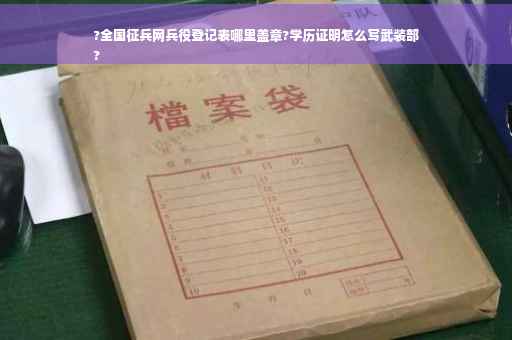 ?全国征兵网兵役登记表哪里盖章?学历证明怎么写武装部
?
檔案袋
材料目次
1 11
2 12
3 13
4 14
5 15
6 16
7 17
8 18
9 19
10 20
年 月 日